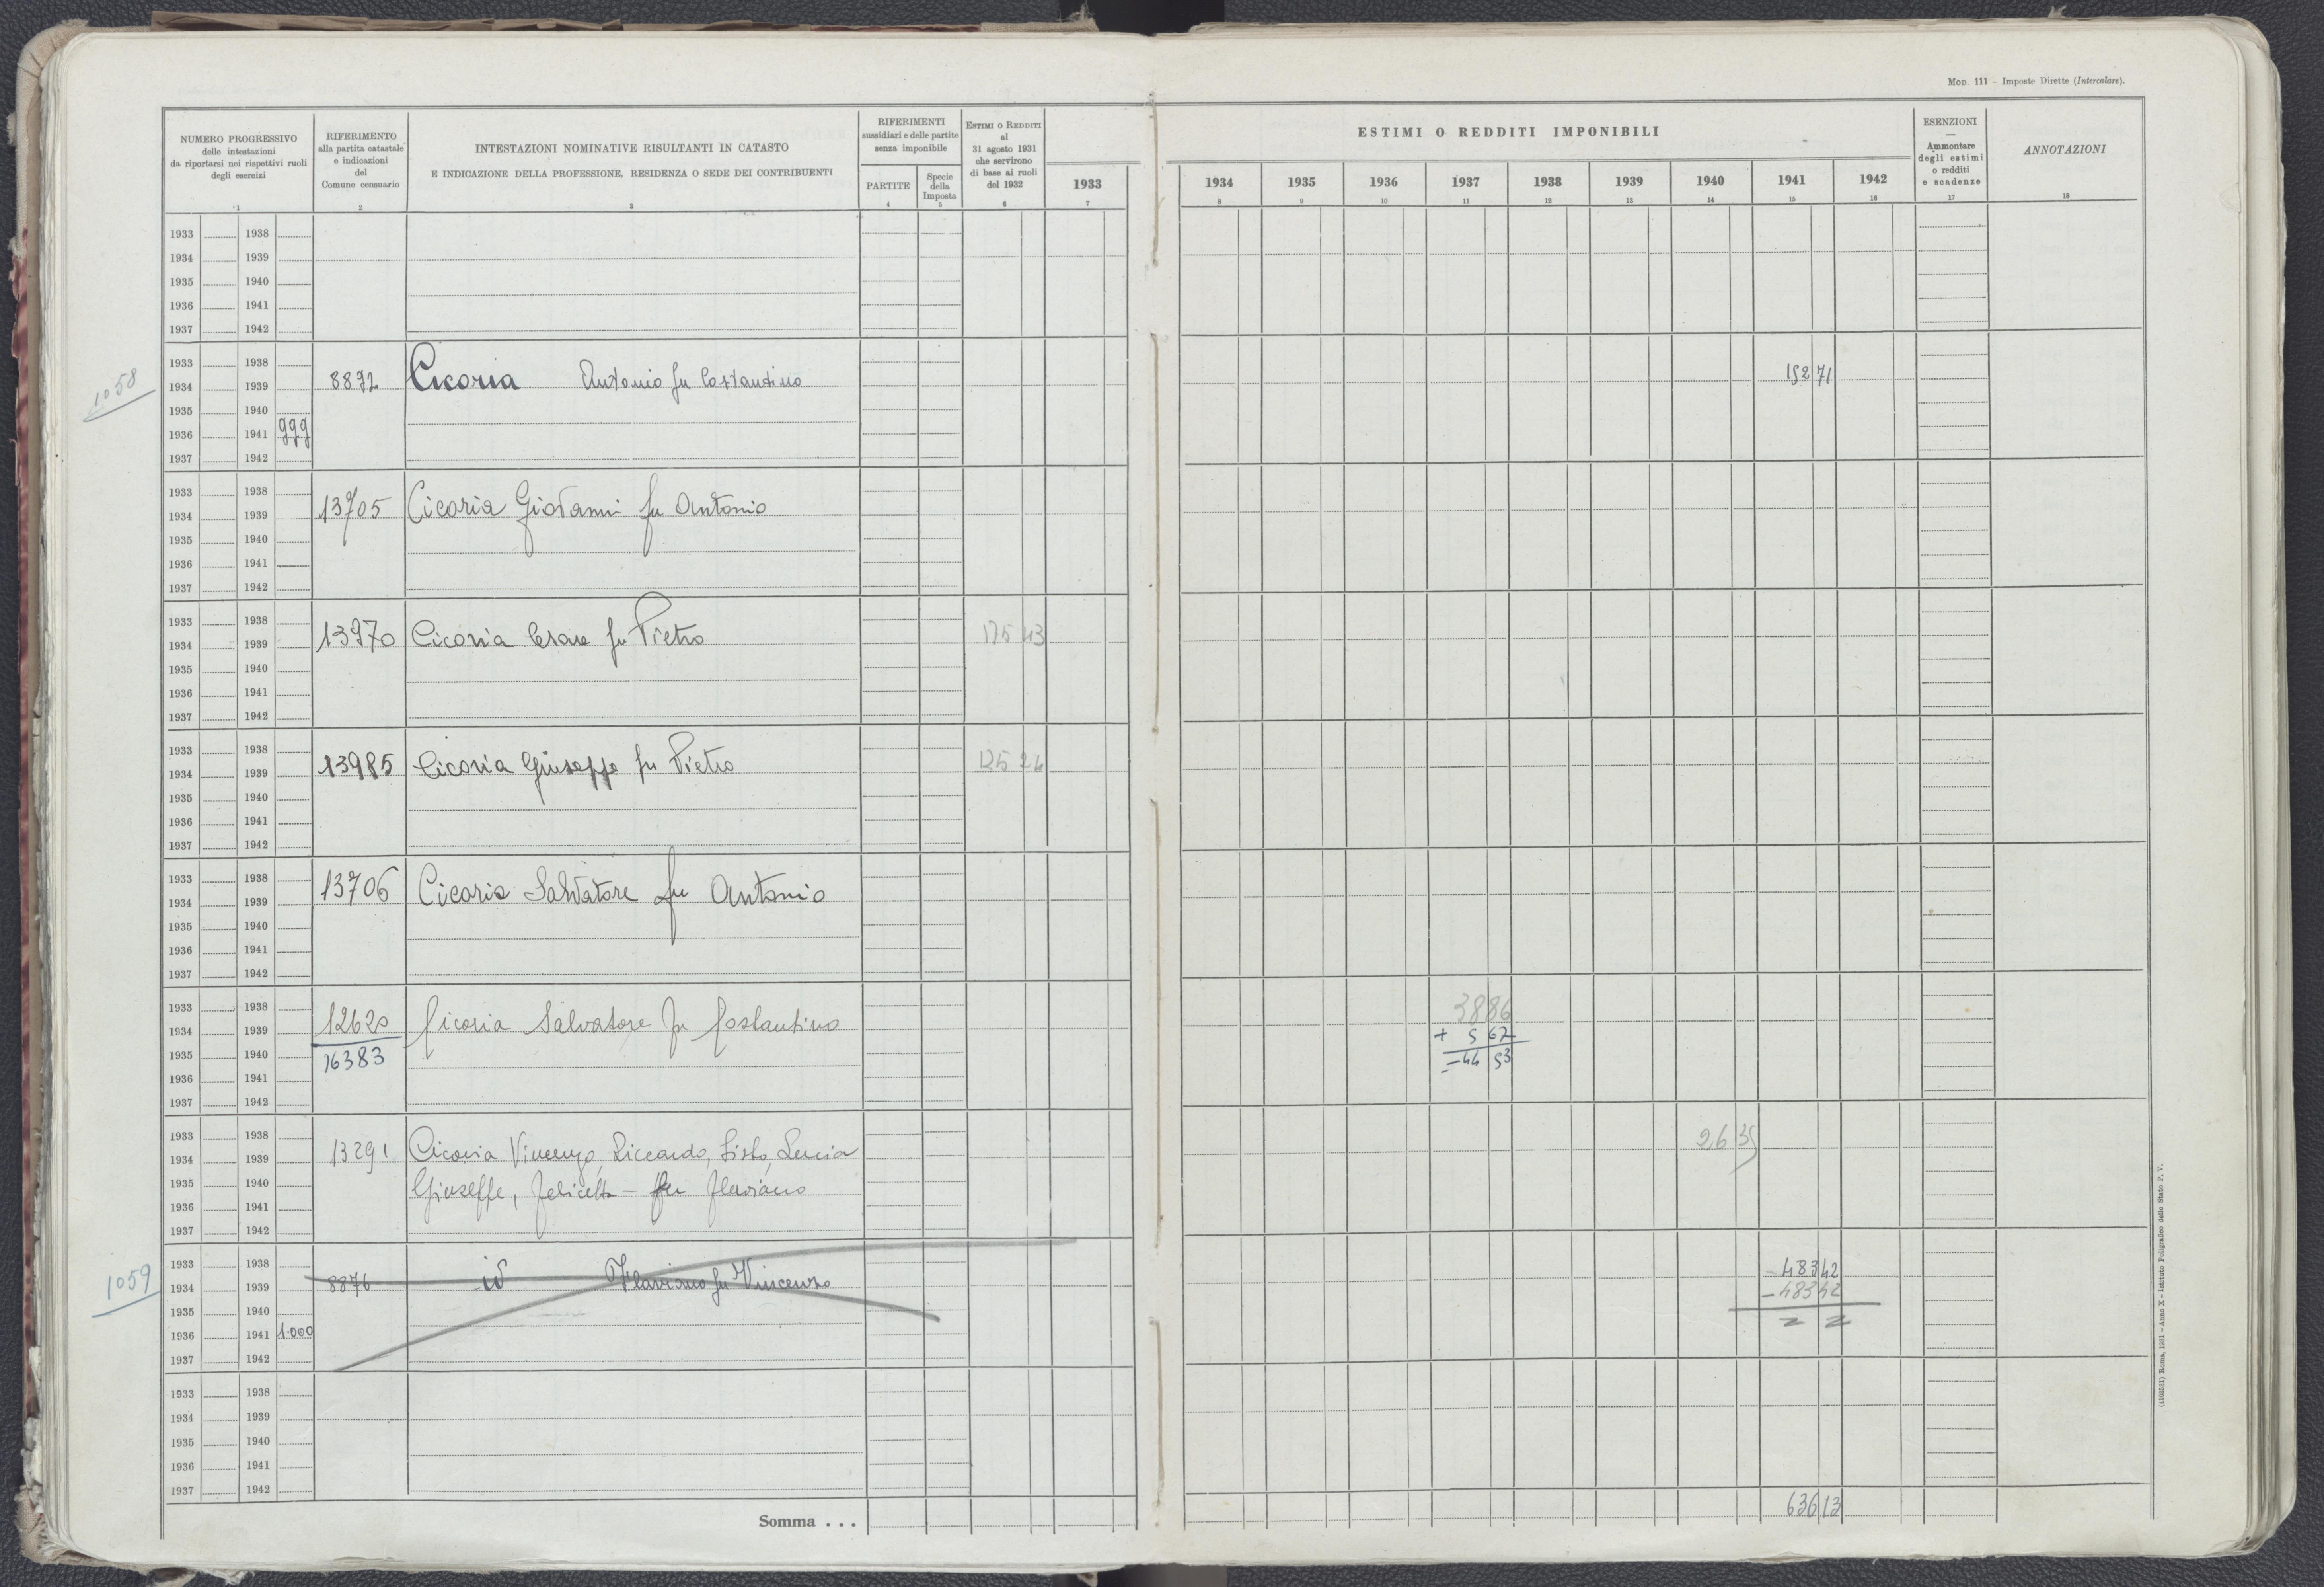 MOD. 111 – Imposte Dirette (Intercalare).
NUMERO PROGRESSIVO
delle intestazioni
da riportarsi nei rispettivi ruoli
degli esercizi
1
RIFERIMENTO
alla partita catastale
e indicazioni
del
Comune censuario
2
INTESTAZIONI NOMINATIVE RISULTANTI IN CATASTO
E INDICAZIONE DELLA PROFESSIONE, RESIDENZA O SEDE DEI CONTRIBUENTI
3
RIFERIMENTI
sussidiari e delle partite
senza imponibile
PARTITE
4
Specie
della
Imposta
5
ESTIMI O REDDITI
al
31 agosto 1931
che servirono
di base ai ruoli
del 1932
6
1933
7
ESTIMI O REDDITI IMPONIBILI
1934 1935 1936 1937 1938 1939 1940 1941 1942
8 9 10 11 12 13 14 15 16
ESENZIONI
—
Ammontare
degli estimi
o redditi
e scadenze
17
ANNOTAZIONI
18
1933 1938
1934 1939
1935 1940
1936 1941
1937 1942
1058
1933 1938
1934 1939 8892 Cicoria Antonio fu Costantino 152 71
1935 1940
1936 1941 999
1937 1942
1933 1938
1934 1939 13705 Cicoria Giovanni fu Antonio
1935 1940
1936 1941
1937 1942
1933 1938
1934 1939 13970 Cicoria Cesare fu Pietro 175 43
1935 1940
1936 1941
1937 1942
1933 1938
1934 1939 13985 Cicoria Giuseppe fu Pietro 125 24
1935 1940
1936 1941
1937 1942
1933 1938
1934 1939 13706 Cicoria Salvatore fu Antonio
1935 1940
1936 1941
1937 1942
1933 1938 38 86
1934 1939 12620 Cicoria Salvatore fu Costantino + 5 67
1935 1940 16383 = 44 53
1936 1941
1937 1942
1933 1938 26 35
1934 1939 13291 Cicoria Vincenzo, Riccardo, Sisto, Lucia
1935 1940 Giuseppe, Felicetta – fu Flaviano
1936 1941
1937 1942
1059
1933 1938 483 42
1934 1939 8876 id Flaviano fu Vincenzo – 483 42
1935 1940
1936 1941 1.000
1937 1942
1933 1938
1934 1939
1935 1940
1936 1941
1937 1942
Somma . . . 636 13
Roma, 1931 – Anno X – Istituto Poligrafico dello Stato P. V.